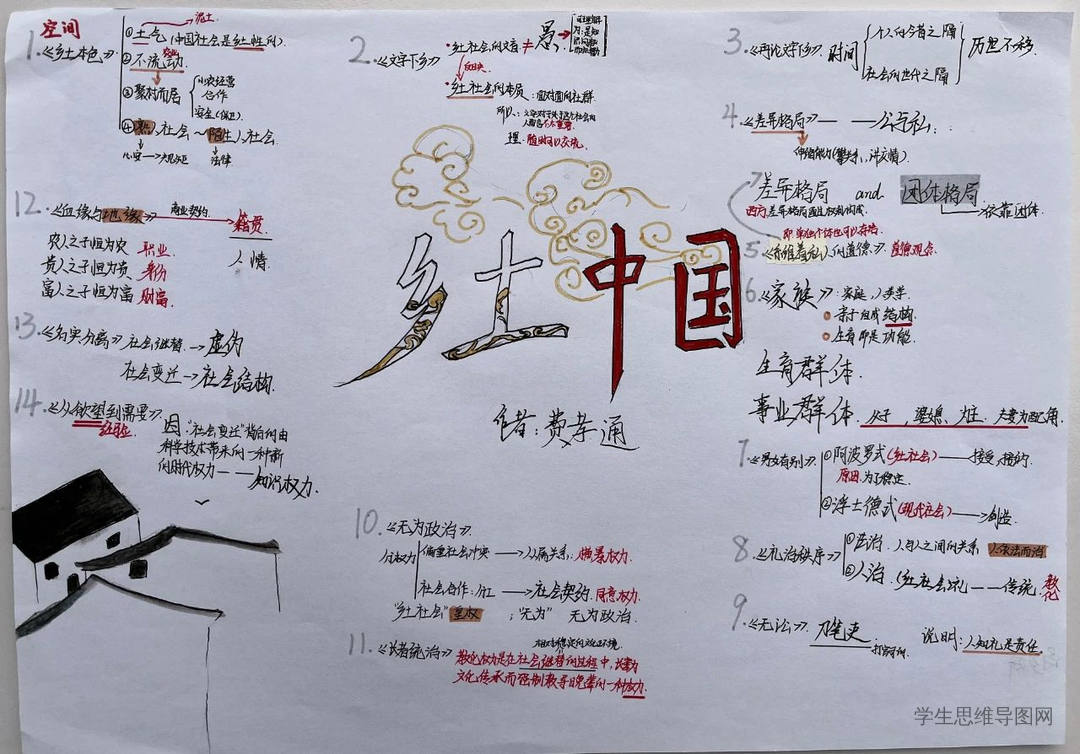 空间
1.《乡土本色》
泥土
①土气(中国社会是乡土性的).
②不流动
③聚村而居
小农经营
合作
安全(保卫).
④熟人社会~陌生人社会.
法律
2.《文字下乡》
·乡土社会的文盲≠愚.
反映
·乡土社会的本质:面对面的社群.
3.《再论文字下乡》.时间
个人的今昔之隔
社会的世代之隔
历世不移.
4.《差异格局》——公与私:
差异格局 and 团体格局
依靠团体.
5.《系维着私人的道德》:道德观点.
6.《家族》:家庭,人类学.
亲子组成结构.
生育即是功能.
生育群体.
事业群体.父子,婆媳.为主.夫妻为配角.
7.《男女有别》
①阿波罗式(乡土社会)——接受,
原因:为了稳定.
②浮士德式(现代社会)——创造.
8.《礼治秩序》
①法治.人与人之间的关系 人依法而治
②人治.(乡土社会)礼——传统.教化
9.《无讼》.刀笔吏.
说明:人知礼是责任.
10.《无为政治》.
分权力
偏重社会冲突→人属关系:横暴权力.
社会合作:分工→社会契约.同意权力.
"乡土社会"皇权;"无为" 无为政治.
11.《长老统治》
教化权力是在社会继替的过程中,长辈为
文化传承而强制教导晚辈的一种权力.
12.《血缘与地缘》
商业契约.
籍贯
人情.
农人之子恒为农 职业.
贵人之子恒为贵 身份
富人之子恒为富 财富.
13.《名实分离》社会继替.→虚伪
社会变迁→社会结构.
14.《从欲望到需要》
经验.
因:"社会变迁"背后的由
科学技术带来的一种新
的时代权力——知识权力.
乡土中国
作者:费孝通
学生思维导图网